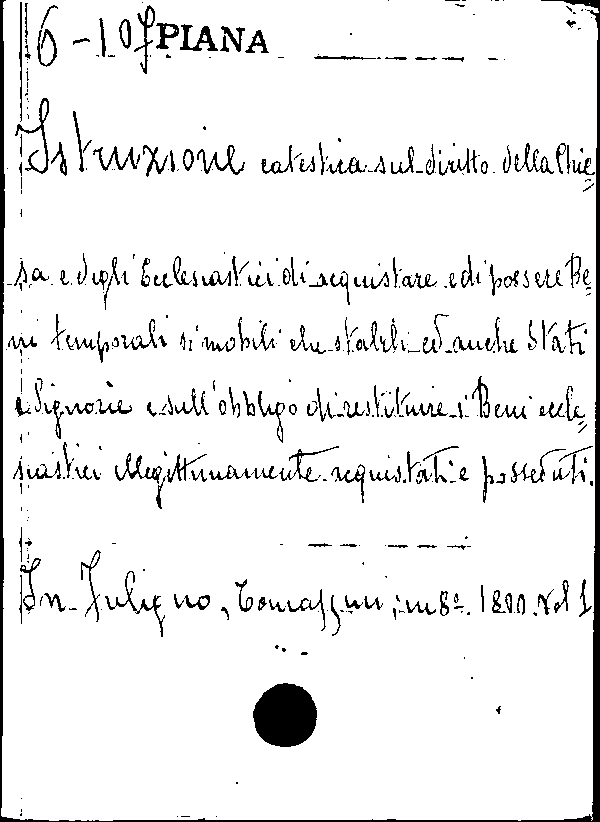 6-10 PIANA
Istruzione catestica sul diritto della Chie=
sa e degli Ecclesiastici di acquistare e di possere Be=
ni temporali si mobili che stabili ed anche Stati
e Signorie e sull'obbligo di restituire i Beni eccle=
siastici illegittimamente acquistati e posseduti.
In Fuligno, Tomassini, in 8º. 1800. Vol 1